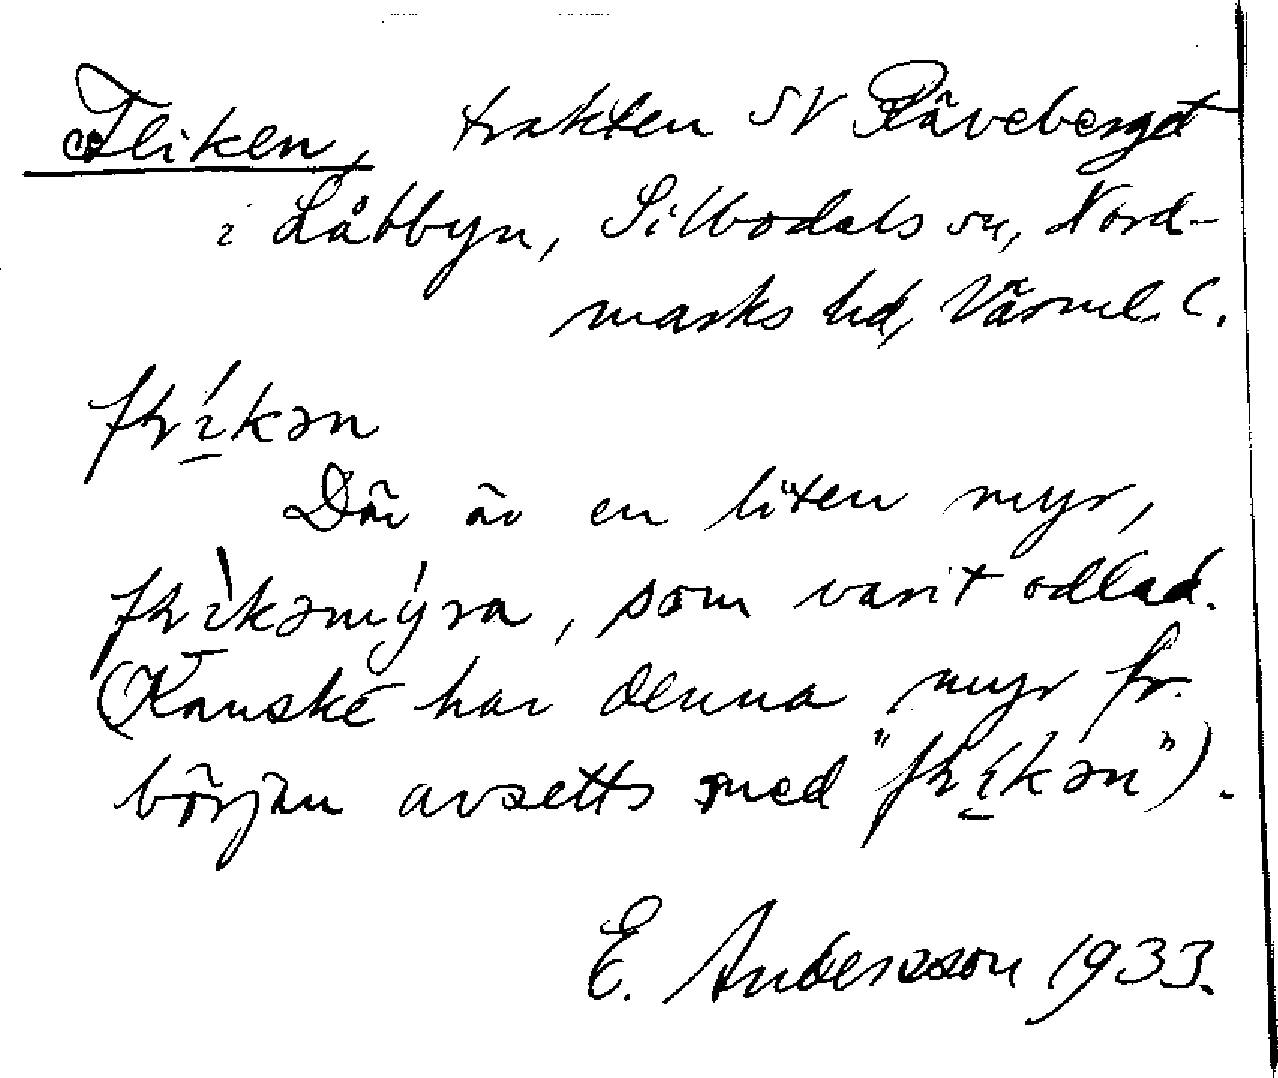 Fliken, trakten SV Räveberget
i Låbbyn, Silbodals sn, Nord-
marks hd, Värml. l.
fɽíkən
Där är en liten myr,
fɽìkəmýra, som varit odlad.
(Kanske har denna myr fr.
början avsetts med "fɽíkən").
E. Andersson 1933.